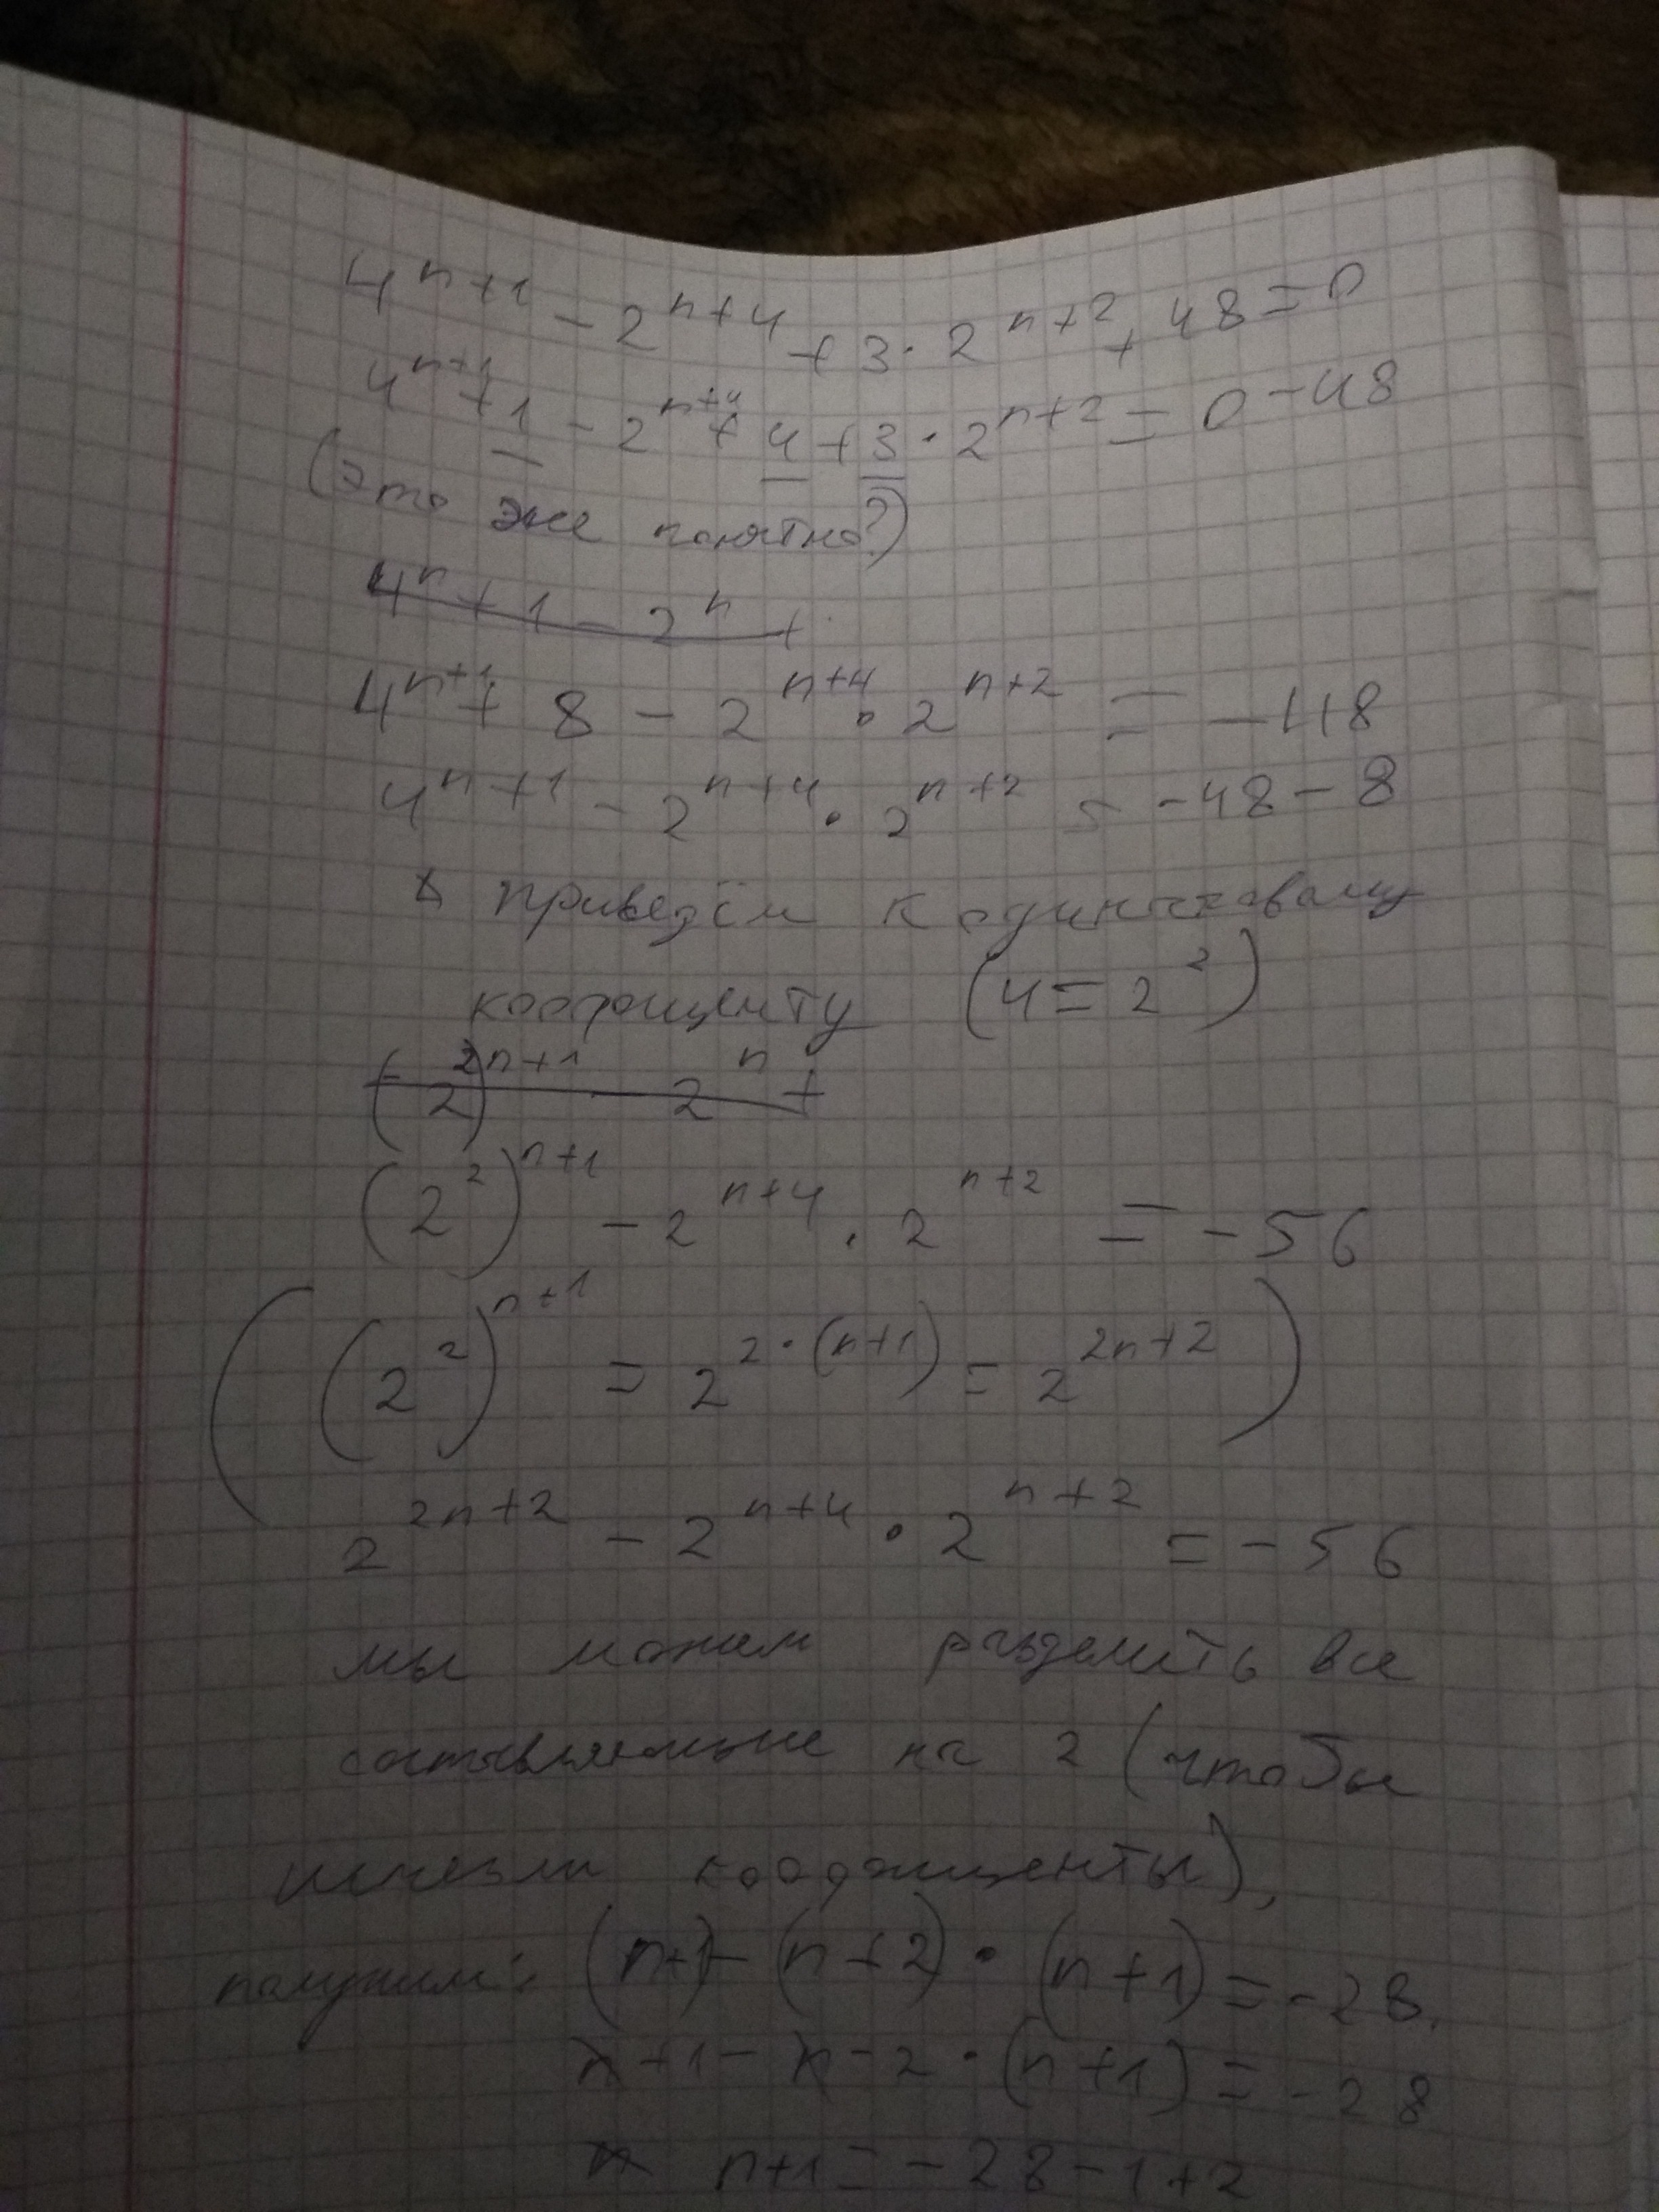 4^{n+1} - 2^{n+4} + 3 · 2^{n+2} + 48 = 0
4^{n+1} + 1 - 2^{n+4} + 4 + 3 · 2^{n+2} = 0 - 48
(это же понятно?)
4^n + 1 - 2^n +
4^{n+1} + 8 - 2^{n+4} · 2^{n+2} = -48
4^{n+1} - 2^{n+4} · 2^{n+2} = -48 - 8
приведём к одинаковому
коэффиценту (4 = 2^2)
(2)^{2n+1} - 2^n +
(2^2)^{n+1} - 2^{n+4} · 2^{n+2} = -56
((2^2)^{n+1} = 2^{2·(n+1)} = 2^{2n+2})
2^{2n+2} - 2^{n+4} · 2^{n+2} = -56
мы можем разделить все
составляющие на 2 (чтобы
исчезли коэффиценты),
получим: (n+1) - (n+2) · (n+1) = -28.
n+1 - n - 2 · (n+1) = -28
n n+1 = -28 - 1 + 2